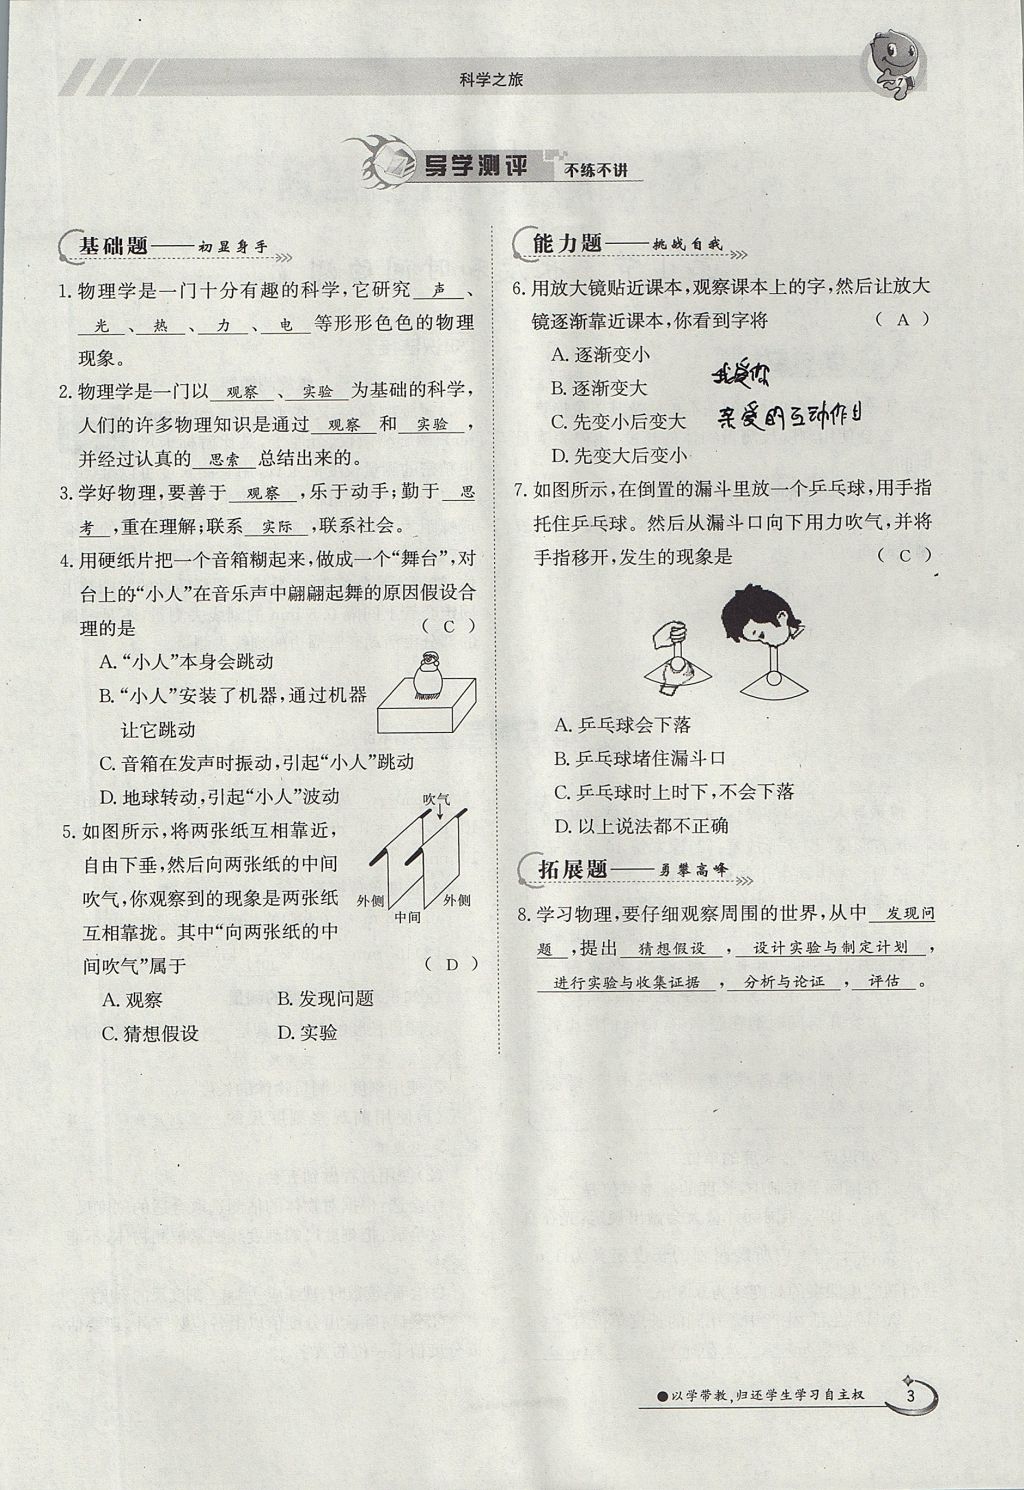 科学之旅
导学测评 不练不讲
基础题——初显身手
1. 物理学是一门十分有趣的科学,它研究 声 、
光 、 热 、 力 、 电 等形形色色的物理
现象。
2. 物理学是一门以 观察 、 实验 为基础的科学,
人们的许多物理知识是通过 观察 和 实验 ,
并经过认真的 思索 总结出来的。
3. 学好物理,要善于 观察 ,乐于动手;勤于 思
考 ,重在理解;联系 实际 ,联系社会。
4. 用硬纸片把一个音箱糊起来,做成一个“舞台”,对
台上的“小人”在音乐声中翩翩起舞的原因假设合
理的是 ( C )
A. “小人”本身会跳动
B. “小人”安装了机器,通过机器
让它跳动
C. 音箱在发声时振动,引起“小人”跳动
D. 地球转动,引起“小人”波动
5. 如图所示,将两张纸互相靠近,
自由下垂,然后向两张纸的中间
吹气,你观察到的现象是两张纸
互相靠拢。其中“向两张纸的中
间吹气”属于 ( D )
吹气
外侧
中间
外侧
A. 观察 B. 发现问题
C. 猜想假设 D. 实验
能力题——挑战自我
6. 用放大镜贴近课本,观察课本上的字,然后让放大
镜逐渐靠近课本,你看到字将 ( A )
A. 逐渐变小
B. 逐渐变大
C. 先变小后变大
D. 先变大后变小
我爱你
亲爱的互动作
7. 如图所示,在倒置的漏斗里放一个乒乓球,用手指
托住乒乓球。然后从漏斗口向下用力吹气,并将
手指移开,发生的现象是 ( C )
A. 乒乓球会下落
B. 乒乓球堵住漏斗口
C. 乒乓球时上时下,不会下落
D. 以上说法都不正确
拓展题——勇攀高峰
8. 学习物理,要仔细观察周围的世界,从中 发现问
题 ,提出 猜想假设 , 设计实验与制定计划 ,
进行实验与收集证据 , 分析与论证 , 评估 。
●以学带教,归还学生学习自主权
3